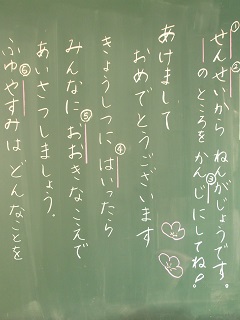 ①せんせいから ②ねんがじょうです。
＿のところを ③かんじにしてね！
あけまして
おめでとうございます
きょうしつに ④はいったら
みんなに ⑤おおきなこえで
あいさつしましょう。
⑥ふゆやすみは どんなことを